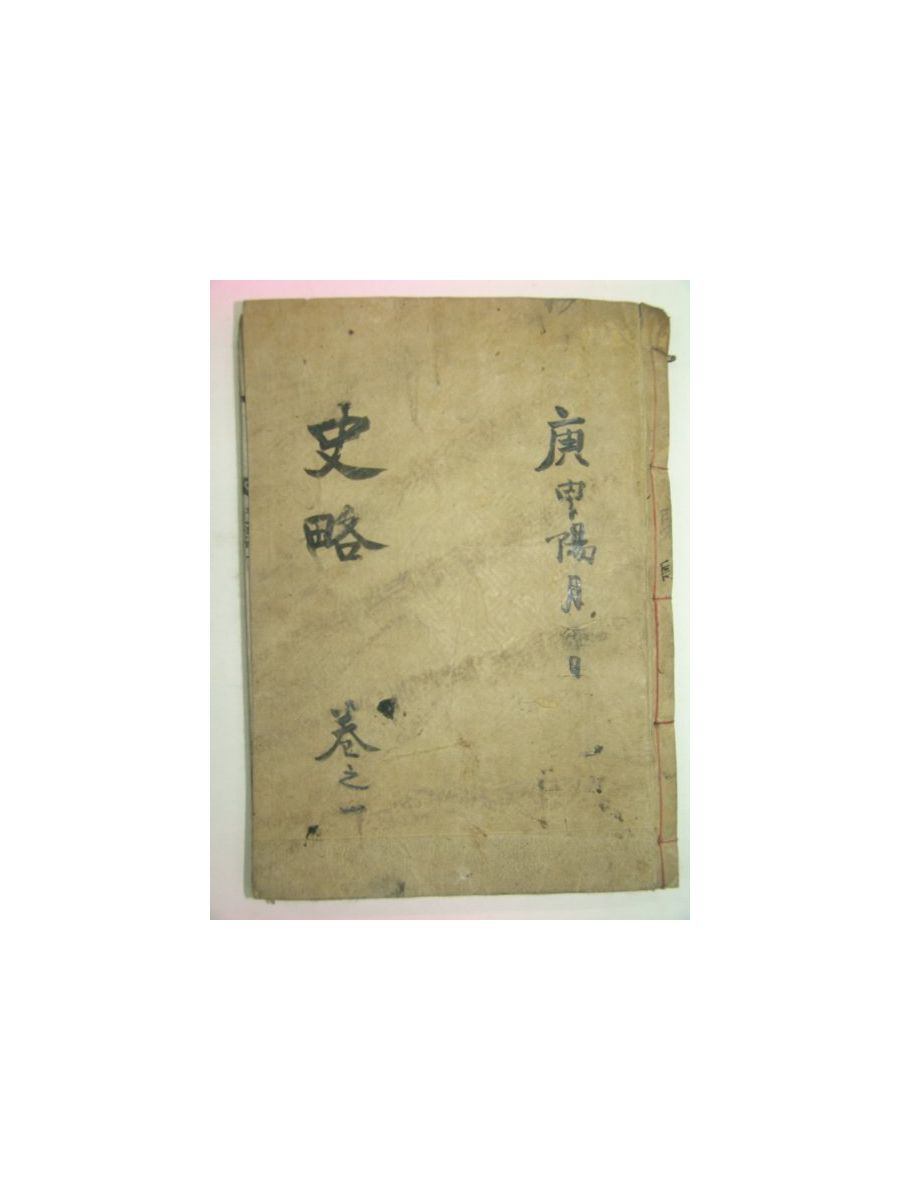 庚申陽月日
史略 卷之一